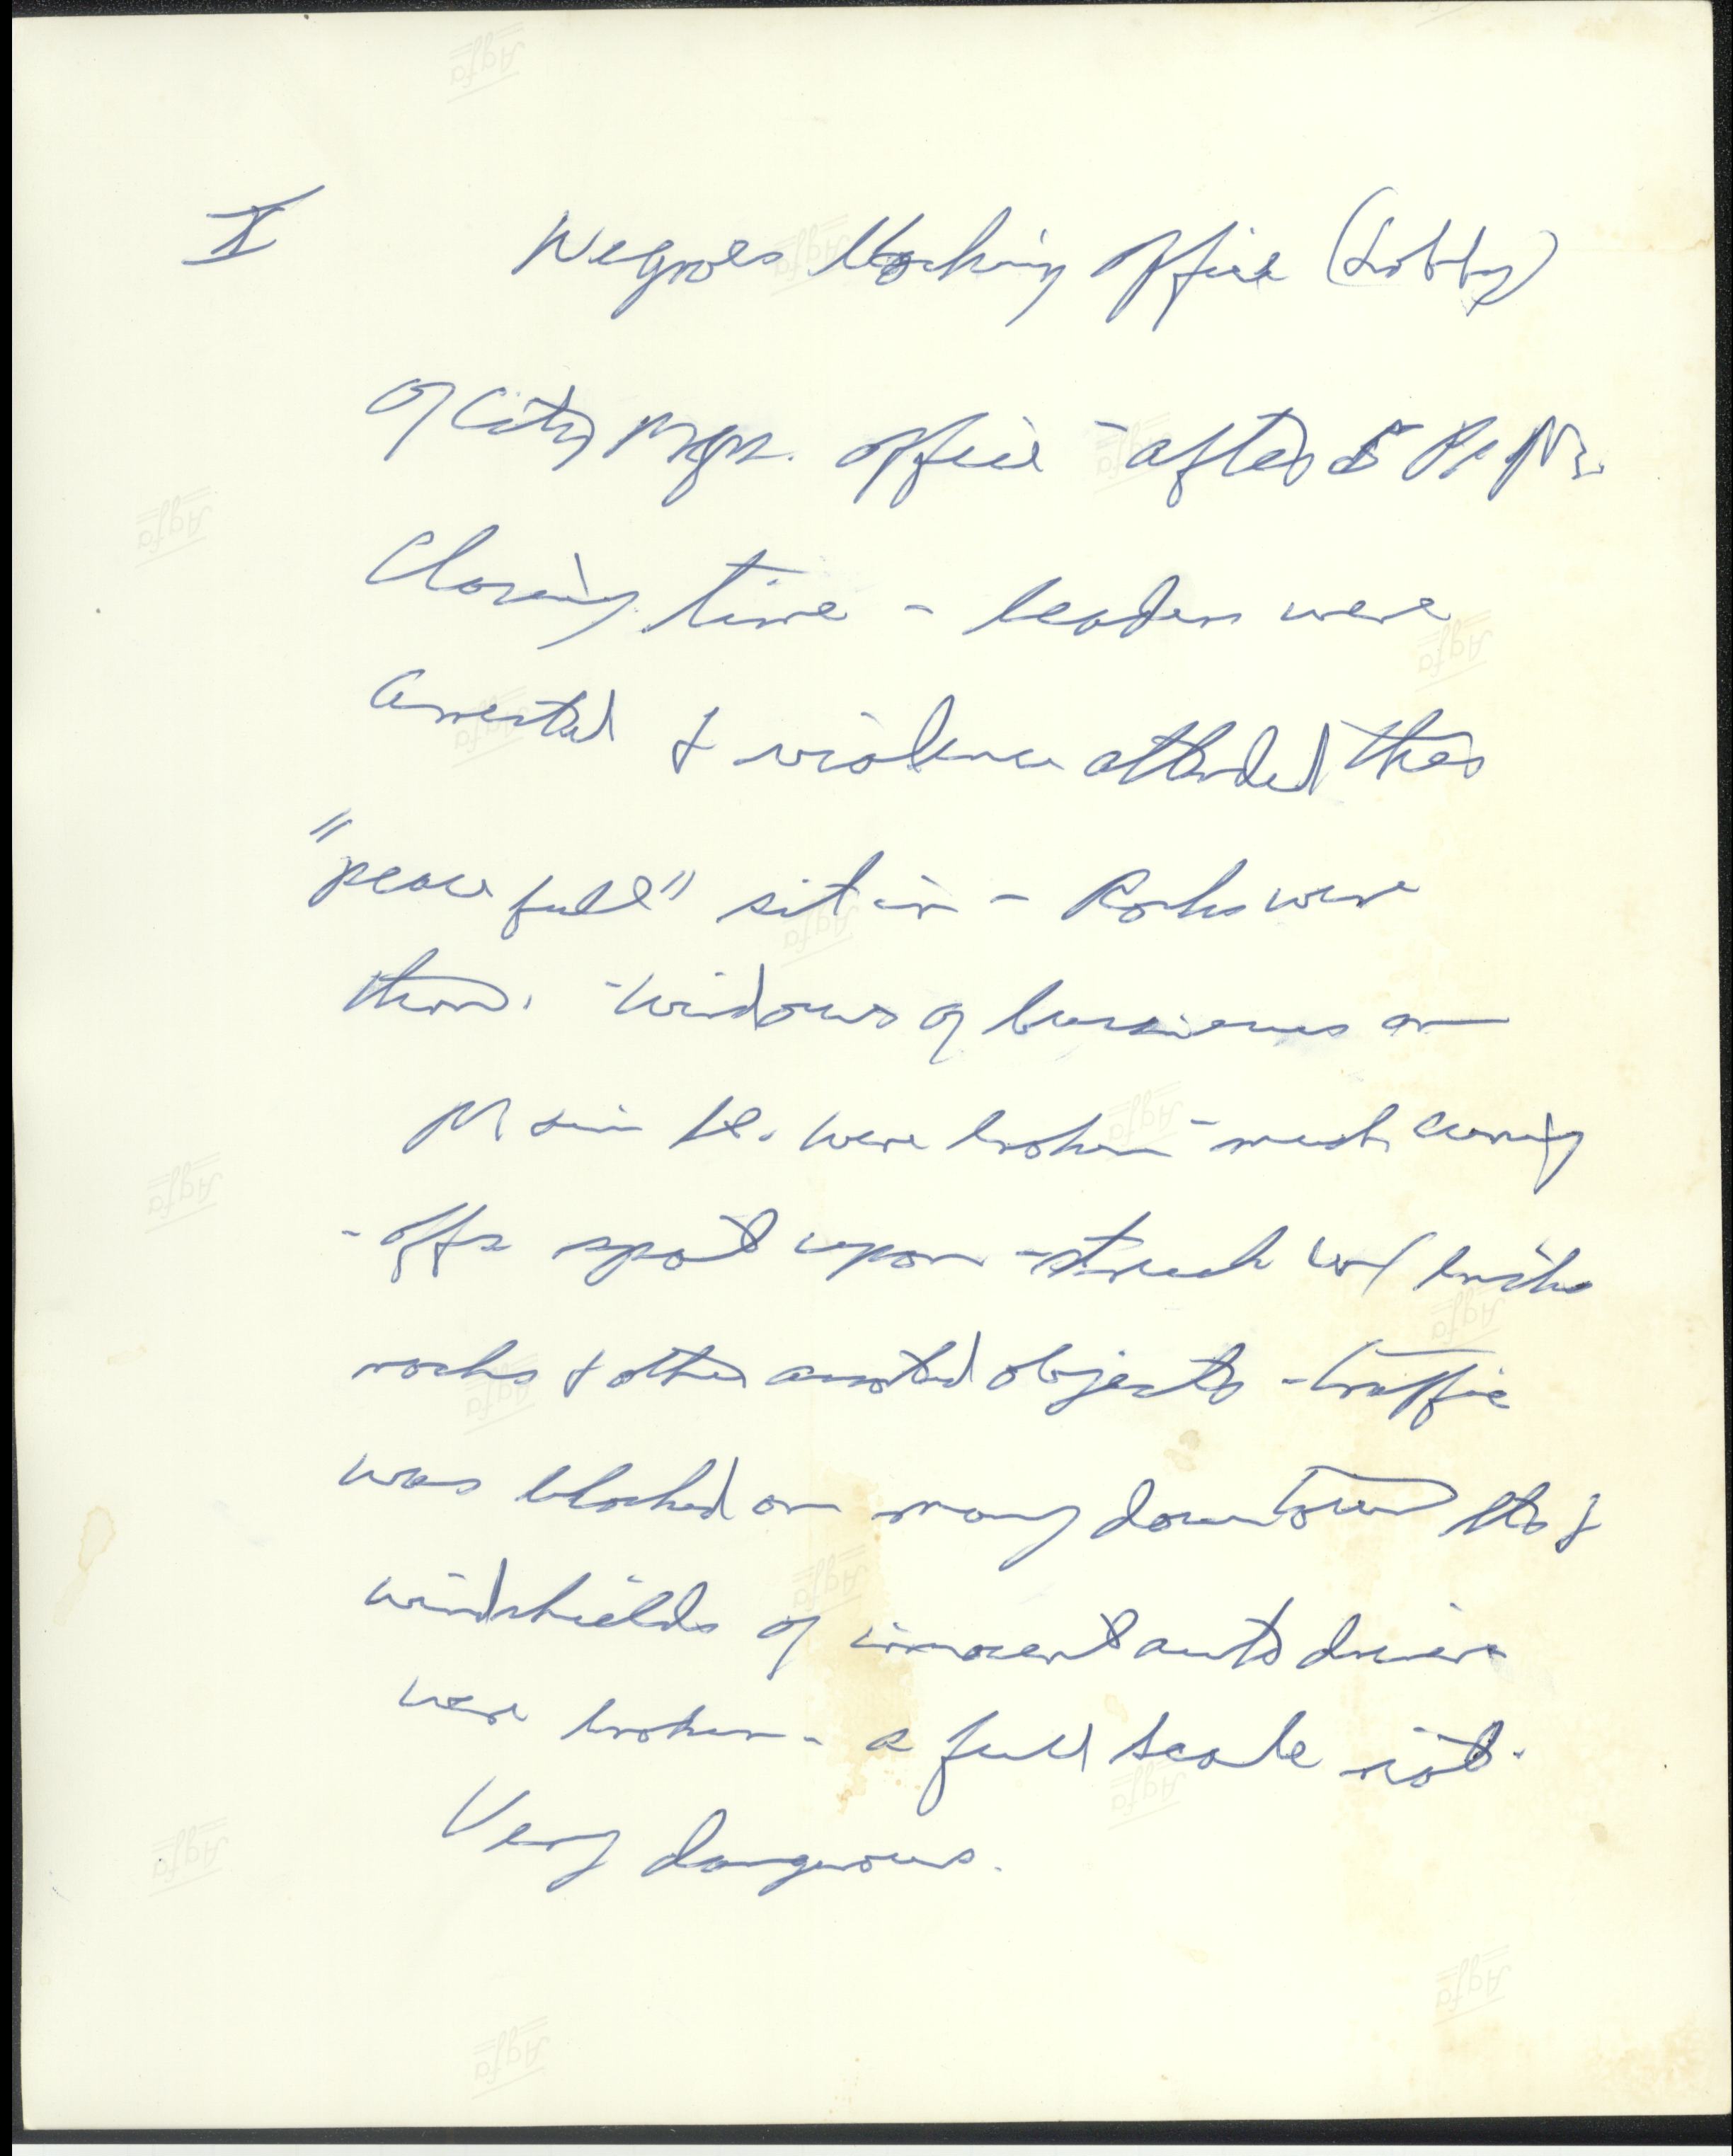 I Negroes blocking office (Lobby)
of City Mgr. office - after 5 P.M.
Closing time - leaders were
arrested & violence attended this
"peace full" sit in - Rocks were
thrown. - Windows of businesses on
Main St. were broken - much cursing
- offs spat upon - struck w/ bricks
rocks & other assorted objects - traffic
was blocked on many downtown sts &
windshields of innocent auto drivers
were broken - a full scale riot.
Very dangerous.
Agfa